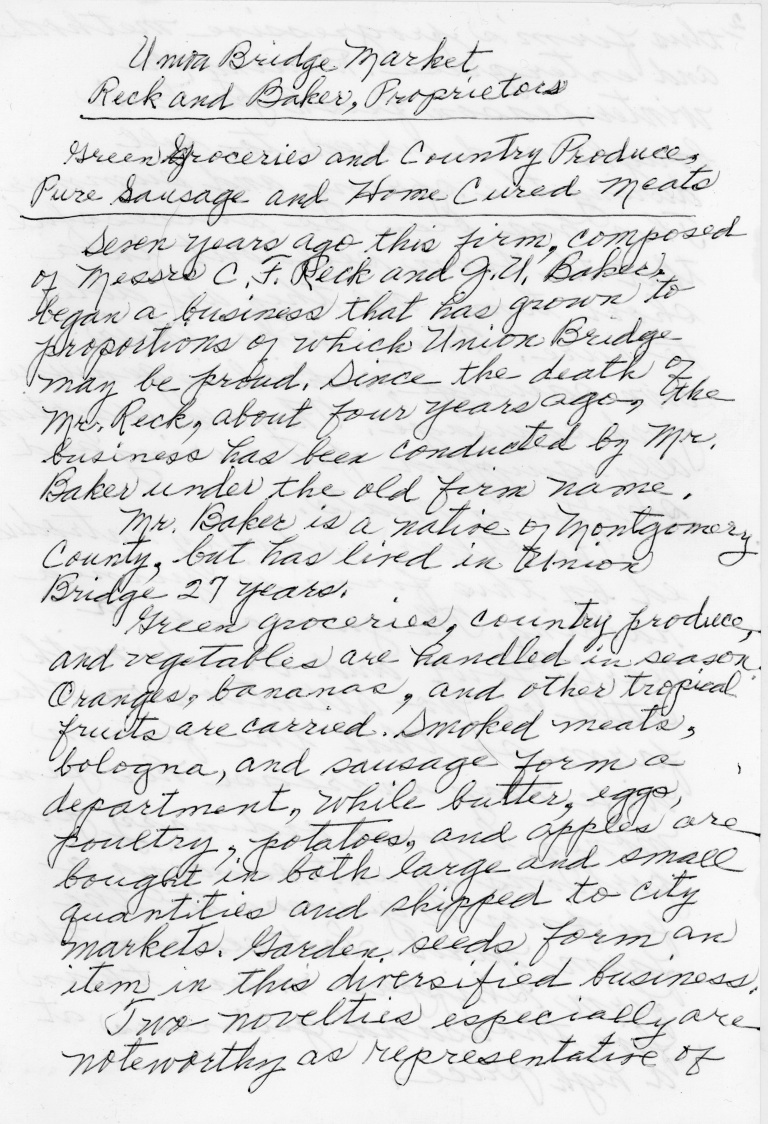 Union Bridge Market
Reck and Baker, Proprietors
Green Groceries and Country Produce,
Pure Sausage and Home Cured Meats
Seven years ago this firm, composed
of Messrs C. F. Reck and J. U. Baker,
began a business that has grown to
proportions of which Union Bridge
may be proud. Since the death of
Mr. Reck, about four years ago, the
business has been conducted by Mr.
Baker under the old firm name.
Mr. Baker is a native of Montgomery
County, but has lived in Union
Bridge 27 years.
Green groceries, country produce,
and vegetables are handled in season.
Oranges, bananas, and other tropical
fruits are carried. Smoked meats,
bologna, and sausage form a
department, while butter, eggs,
poultry, potatoes, and apples are
bought in both large and small
quantities and shipped to city
markets. Garden seeds form an
item in this diversified business.
Two novelties especially are
noteworthy as representative of